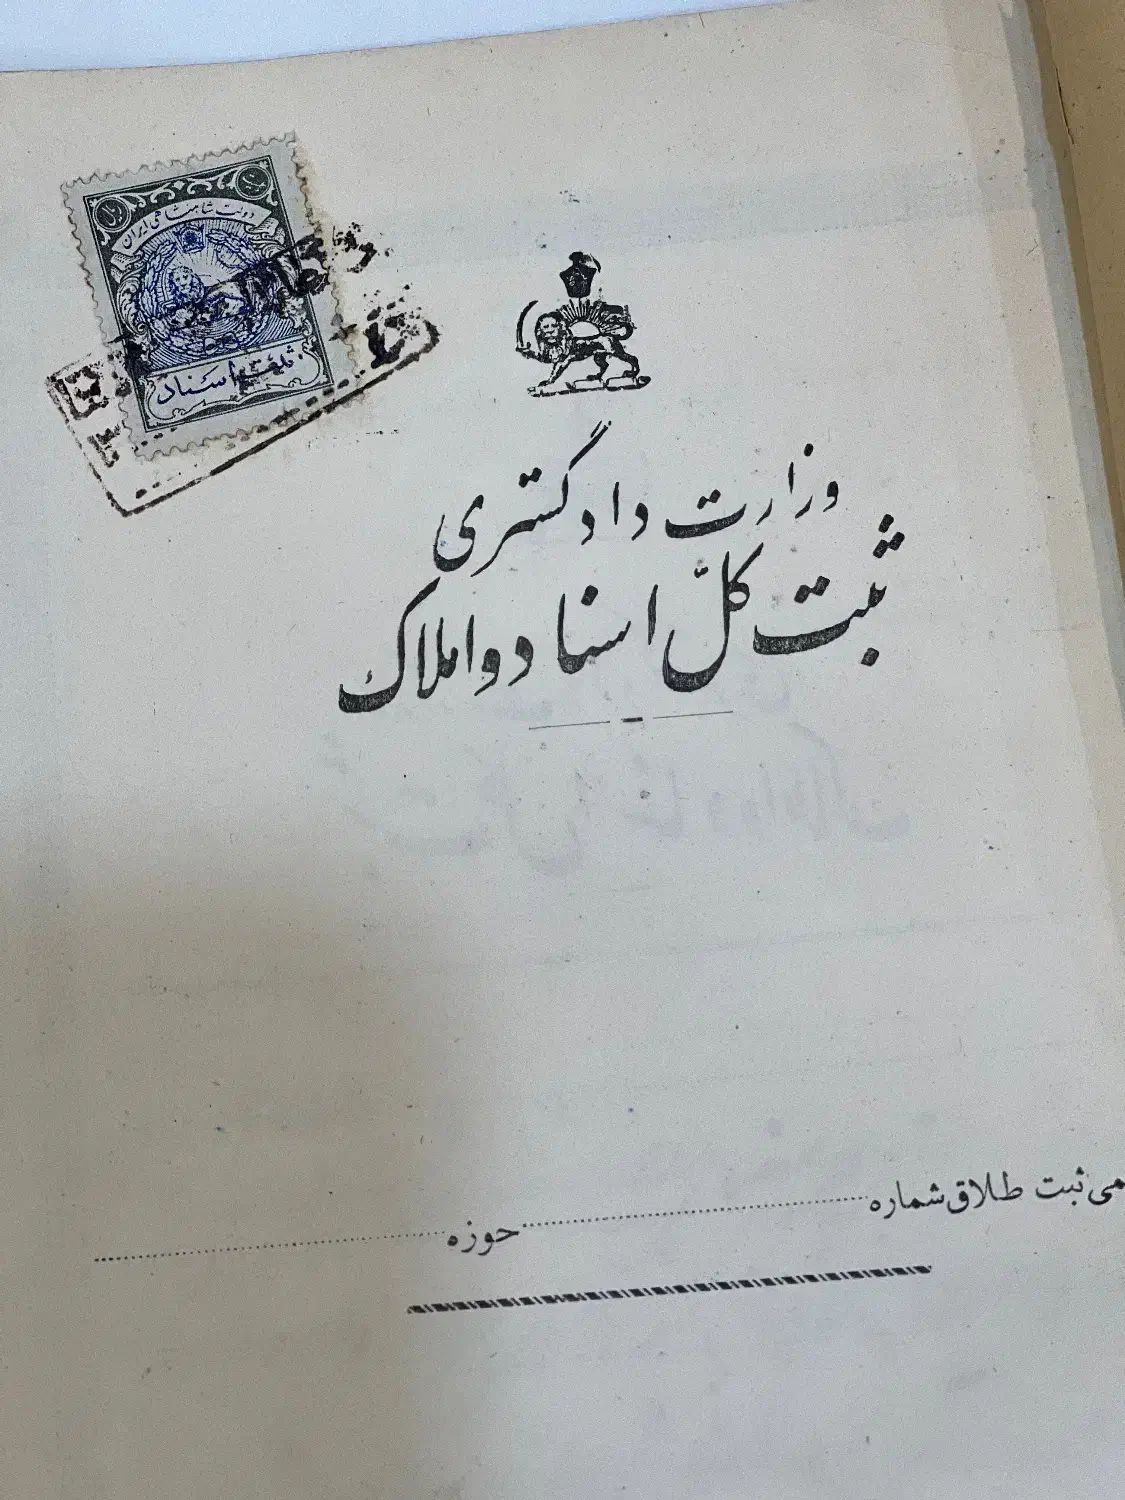 دولت شاهنشاهی ایران
وزارت دادگستری
ثبت کلّ اسناد و املاک
ثبت طلاق شماره حوزه